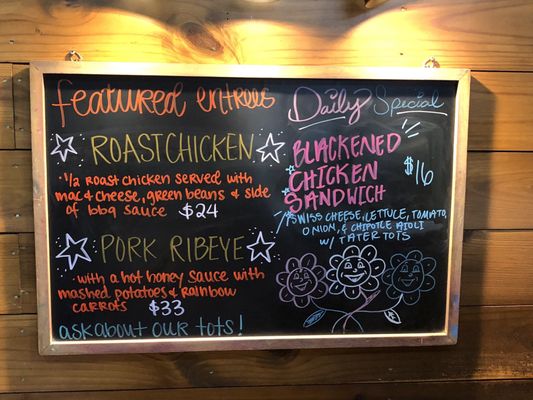 featured entrees
ROAST CHICKEN
1/2 roast chicken served with
mac & cheese, green beans & side
of bbq sauce $24
PORK RIBEYE
with a hot honey sauce with
mashed potatoes & rainbow
carrots $33
ask about our tots!
Daily Special
BLACKENED
CHICKEN
SANDWICH
$16
SWISS CHEESE, LETTUCE, TOMATO,
ONION, & CHIPOTLE AIOLI
W/ TATER TOTS